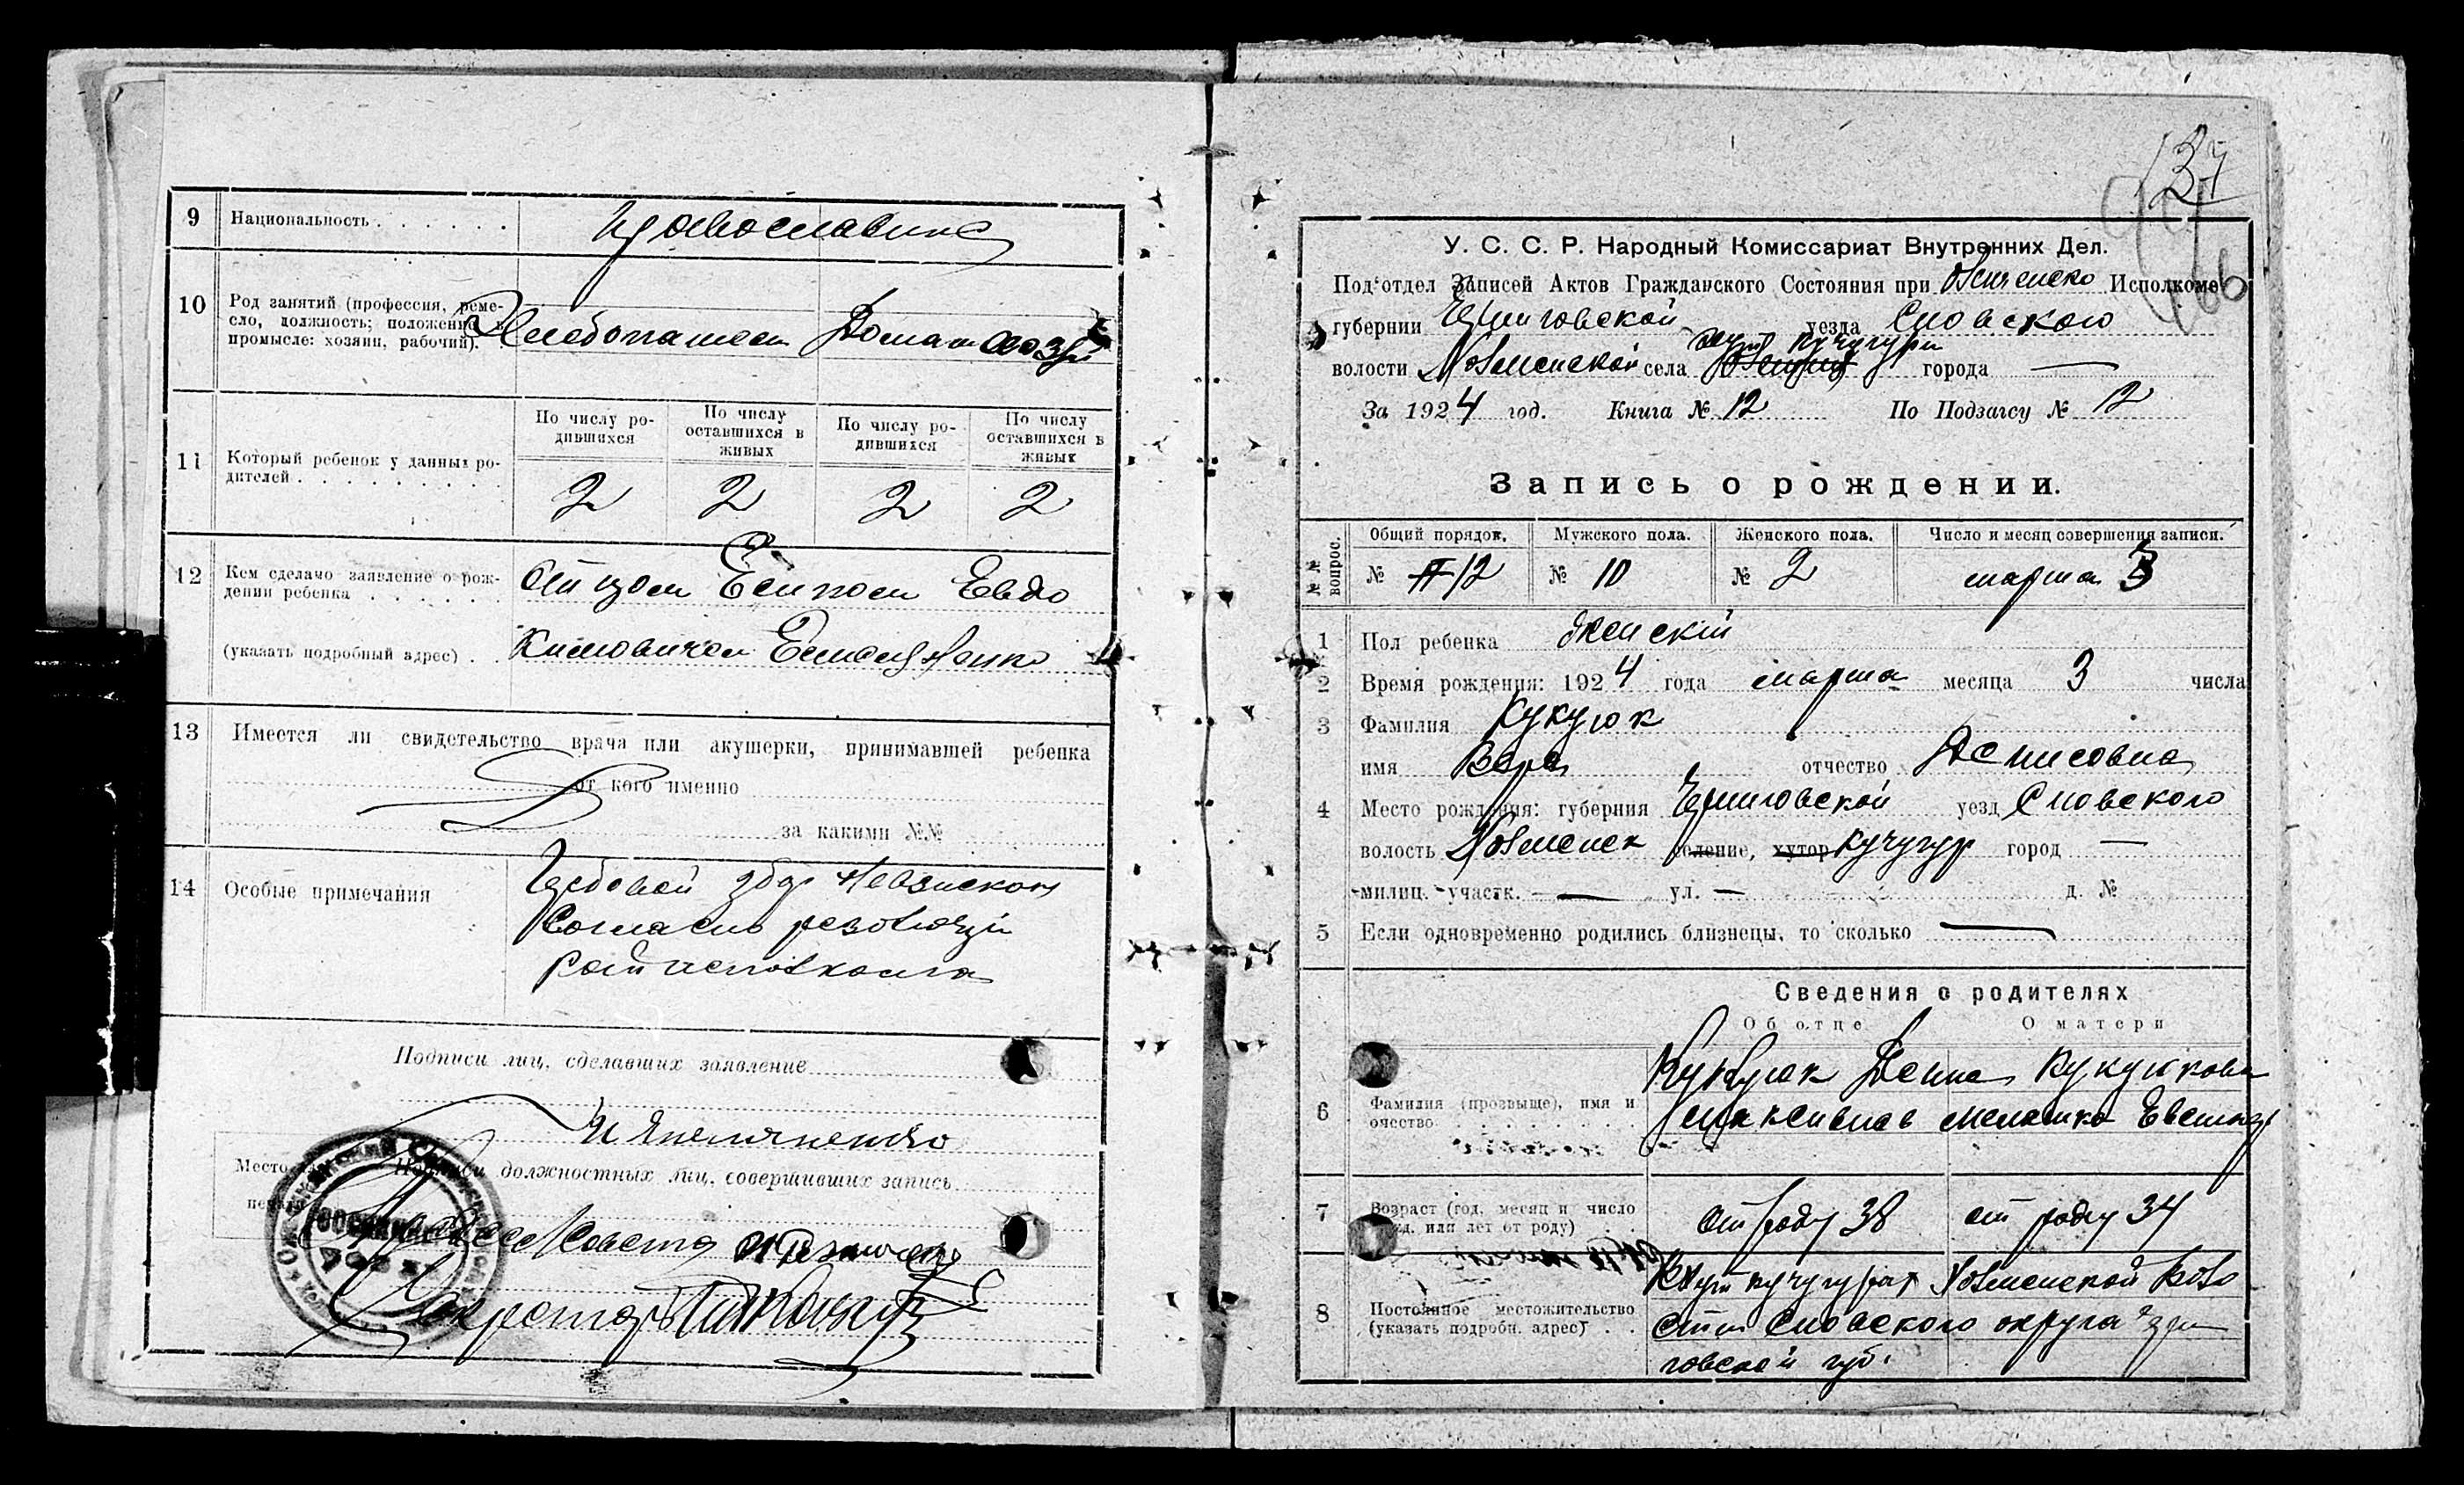 9 Национальность . . . . . . православние
10 Род занятий (профессия, реме-
сло, должность; положение в
промысле: хозяин, рабочий). Хлебопашест Домашн хозяй
11 Который ребенок у данных ро-
дителей . . . . . . . . .
По числу ро-
дившихся
По числу
оставшихся в
живых
По числу ро-
дившихся
По числу
оставшихся в
живых
2 2 2 2
12 Кем сделано заявление о рож-
дении ребенка . . . . . . Отцом Евдо
(указать подробный адрес) . . кимовичем
13 Имеется ли свидетельство врача или акушерки, принимавшей ребенка
от кого именно
за какими №№
14 Особые примечания
Гербовой збор невзискан
Согласно резолюции
Подписи лиц, сделавших заявление
Место
печати
Подписи должностных лиц, совершивших запись
Секретарь
137
66
У. С. С. Р. Народный Комиссариат Внутренних Дел.
Под'отдел Записей Актов Гражданского Состояния при Исполкоме
губернии Черниговской уезда Сновского
хут Кучугури
волости села города —
За 1924 год. Книга № 12 По Подзагсу № 12
Запись о рождении.
№№ вопрос.
Общий порядок. Мужского пола. Женского пола. Число и месяц совершения записи.
№ 12 № 10 № 2 марта 3
1 Пол ребенка женский
2 Время рождения: 1924 года марта месяца 3 числа
3 Фамилия Кукуюк
имя Вера отчество Денисовна
4 Место рождения: губерния Черниговской уезд Сновского
волость селение, хутор Кучугур город —
милиц. участк. — ул. — д. №
5 Если одновременно родились близнецы, то сколько —
Сведения о родителях
Об отце О матери
6 Фамилия (прозвыще), имя и
очество . . . . . . . .
Кукуюк Денис Кукуюкова
7 Возраст (год, месяц и число
рожд. или лет от роду) . .
от роду 38 от роду 34
8 Постоянное местожительство
(указать подробн. адрес) . .
Хут Кучугурах Воло
сти Сновского округа Черни
говской губ.